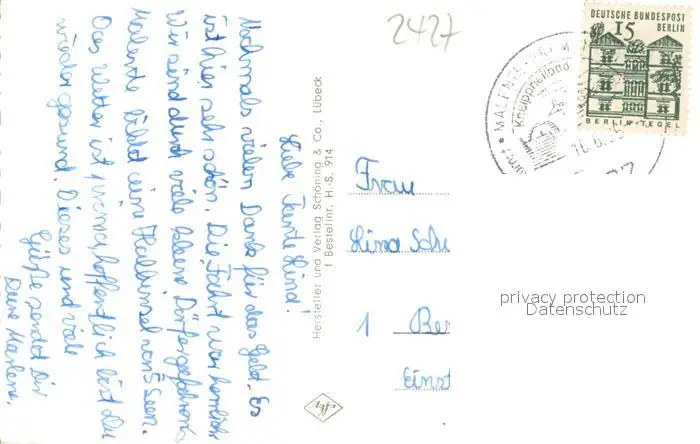 2427
DEUTSCHE BUNDESPOST
BERLIN
15
BERLIN-TEGEL
MALENTE
Kneippheilbad
16.6.65
Liebe Tante Lina!
Nochmals vielen Dank für das Geld. Es
ist hier sehr schön. Die Fahrt war herrlich
Wir sind durch viele kleine Dörfer gefahren.
Malente bildet eine Halbinsel von 5 Seen.
Das Wetter ist prima, hoffentlich bist Du
wieder gesund. Dieses und viele
Grüße sendet Dir
Deine Marlene.
Hersteller und Verlag Schöning & Co., Lübeck
1 Bestellnr. H.-S. 914
Frau
Lina Schu
1 Ber
Einst
privacy protection
Datenschutz